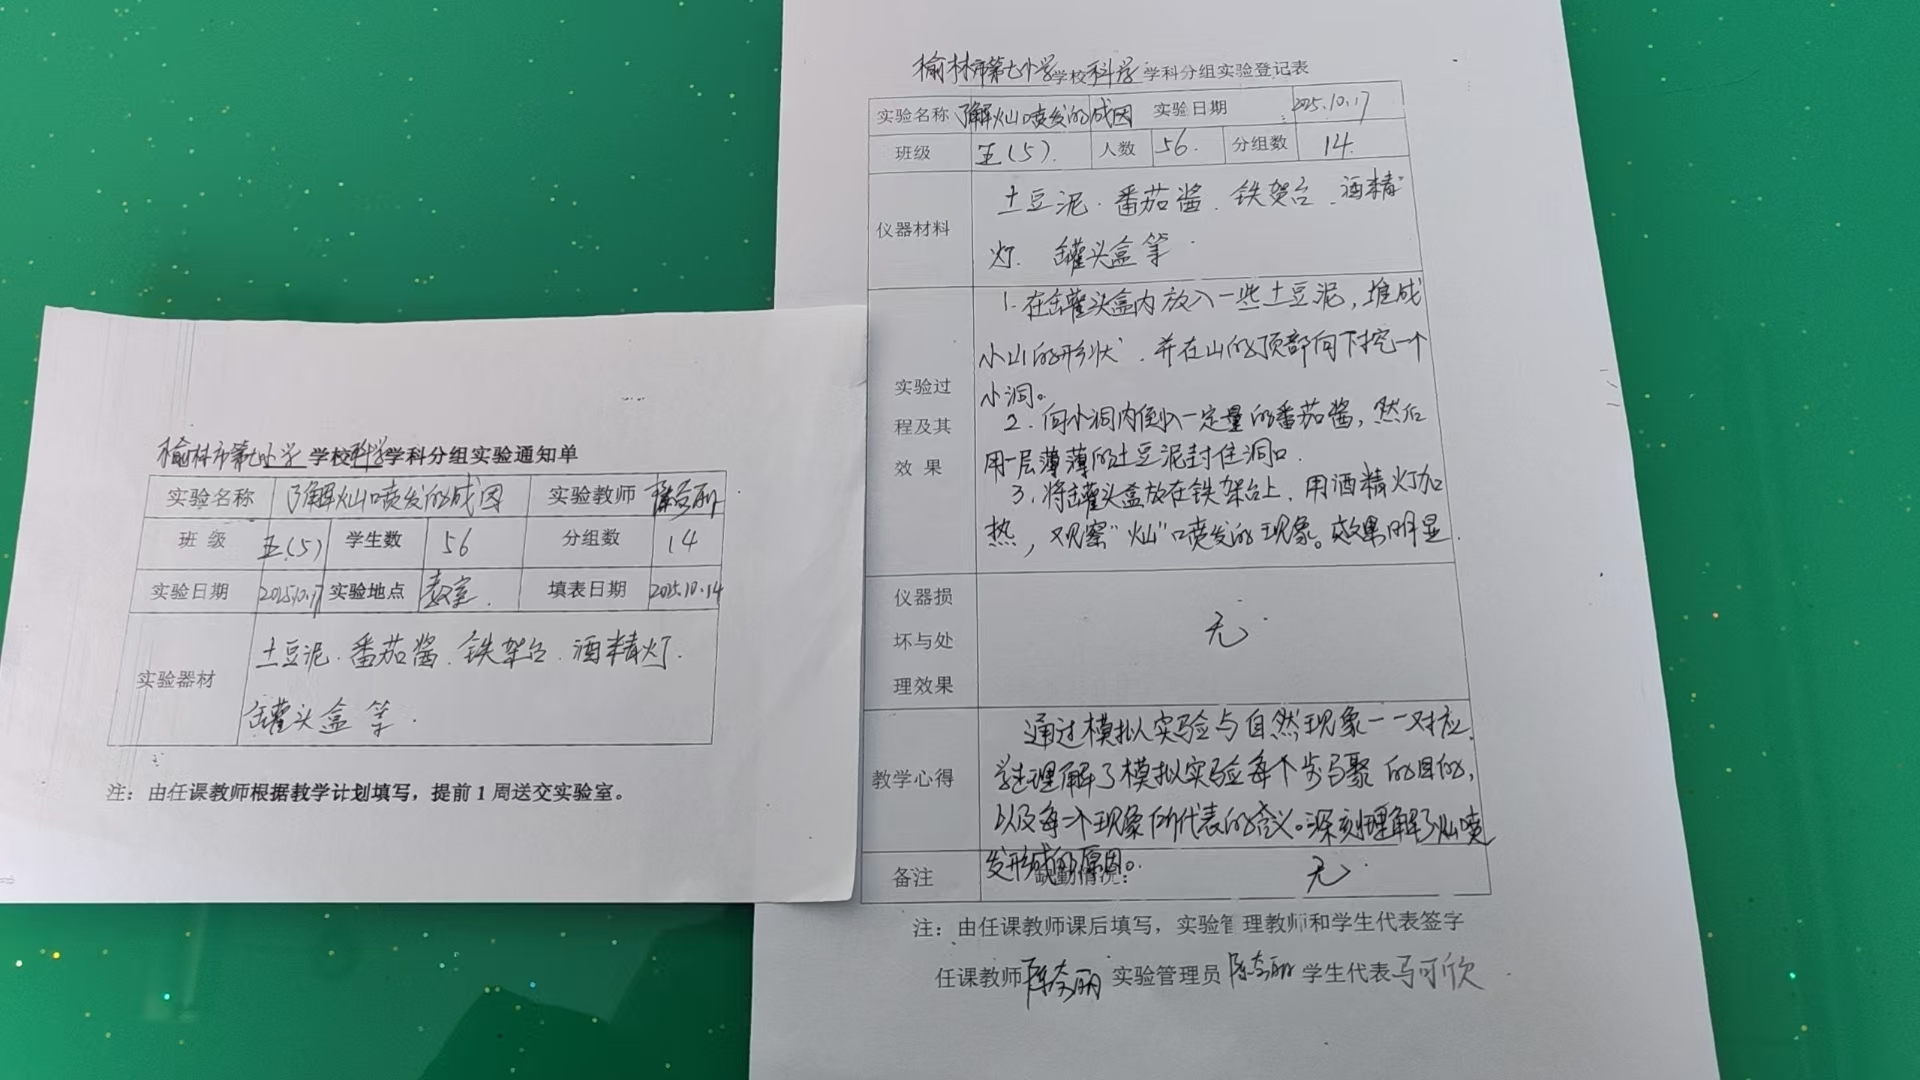 榆林市第七小学学校科学学科分组实验通知单
实验名称 了解火山喷发的成因 实验教师
班 级 五(5) 学生数 56 分组数 14
实验日期 2025.10.17 实验地点 教室. 填表日期 2025.10.14
实验器材 土豆泥.番茄酱.铁架台.酒精灯.
罐头盒等.
注：由任课教师根据教学计划填写，提前1周送交实验室。
榆林市第七小学学校科学学科分组实验登记表
实验名称 了解火山喷发的成因 实验日期 2025.10.17
班级 五(5). 人数 56. 分组数 14.
仪器材料 土豆泥.番茄酱.铁架台.酒精
灯. 罐头盒等.
实验过程及其效果
1.在罐头盒内放入一些土豆泥，堆成
小山的形状.并在山的顶部向下挖一个
小洞。
2.向小洞内倒入一定量的番茄酱，然后
用一层薄薄的土豆泥封住洞口.
3.将罐头盒放在铁架台上.用酒精灯加
热，观察"火山"喷发的现象。效果明显.
仪器损坏与处理效果 无.
教学心得
通过模拟实验与自然现象一一对应.
理解了模拟实验每个步骤的目的,
以及每一个现象所代表的含义。深刻理解了火山喷
发形成的原因。
备注 缺勤情况： 无.
注：由任课教师课后填写，实验管理教师和学生代表签字
任课教师 实验管理员 学生代表马可欣